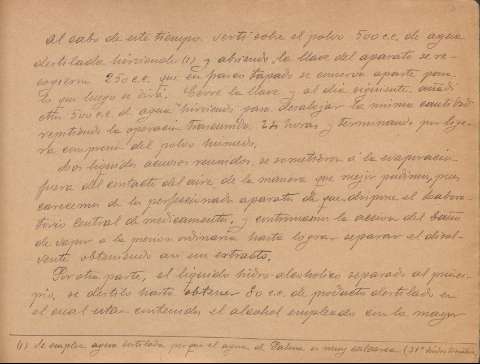 Al cabo de este tiempo vertí sobre el polvo 500 c.c. de agua
destilada hirviendo (1) y abriendo la llave del aparato se re-
cogieron 250 c.c. que en frasco tapado se conserva aparte para
lo que luego se dirá. Cerré la llave y al dia siguiente añadí
otros 500 c.c. de agua hirviendo para desalojar la misma cantidad
repitiendo la operación transcurridas 24 horas y terminando por lige-
ra compresión del polvo húmedo.
Los líquidos acuosos reunidos, se sometieron á la evaporación
fuera del contacto del aire de la manera que mejor pudimos, pues
carecemos de la perfeccionado aparato de que dispone el Labora-
torio Central de medicamentos, y continuamos la acción del baño
de vapor a la presion ordinaria hasta lograr separar el disol-
vente obteniendo asi un extracto.
Por otra parte, el líquido hidro-alcohólico separado al princi-
pio, se destiló hasta obtener 80 c.c. de producto destilado en
el cual están contenidos el alcohol empleado con la mayor
(1) Se emplea agua destilada porque el agua de es muy calcárea (31º hidrotimétricos